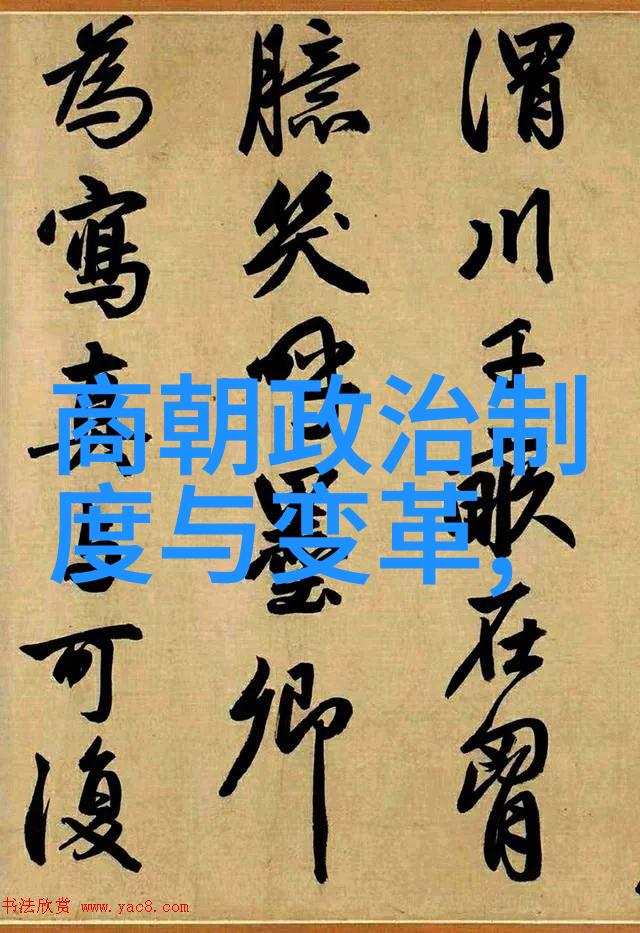 渭川千畝在胷
臆笑呼墨卿
為寫真与可復
商朝政治制
度与变革,
书法欣赏 www.yac8.com